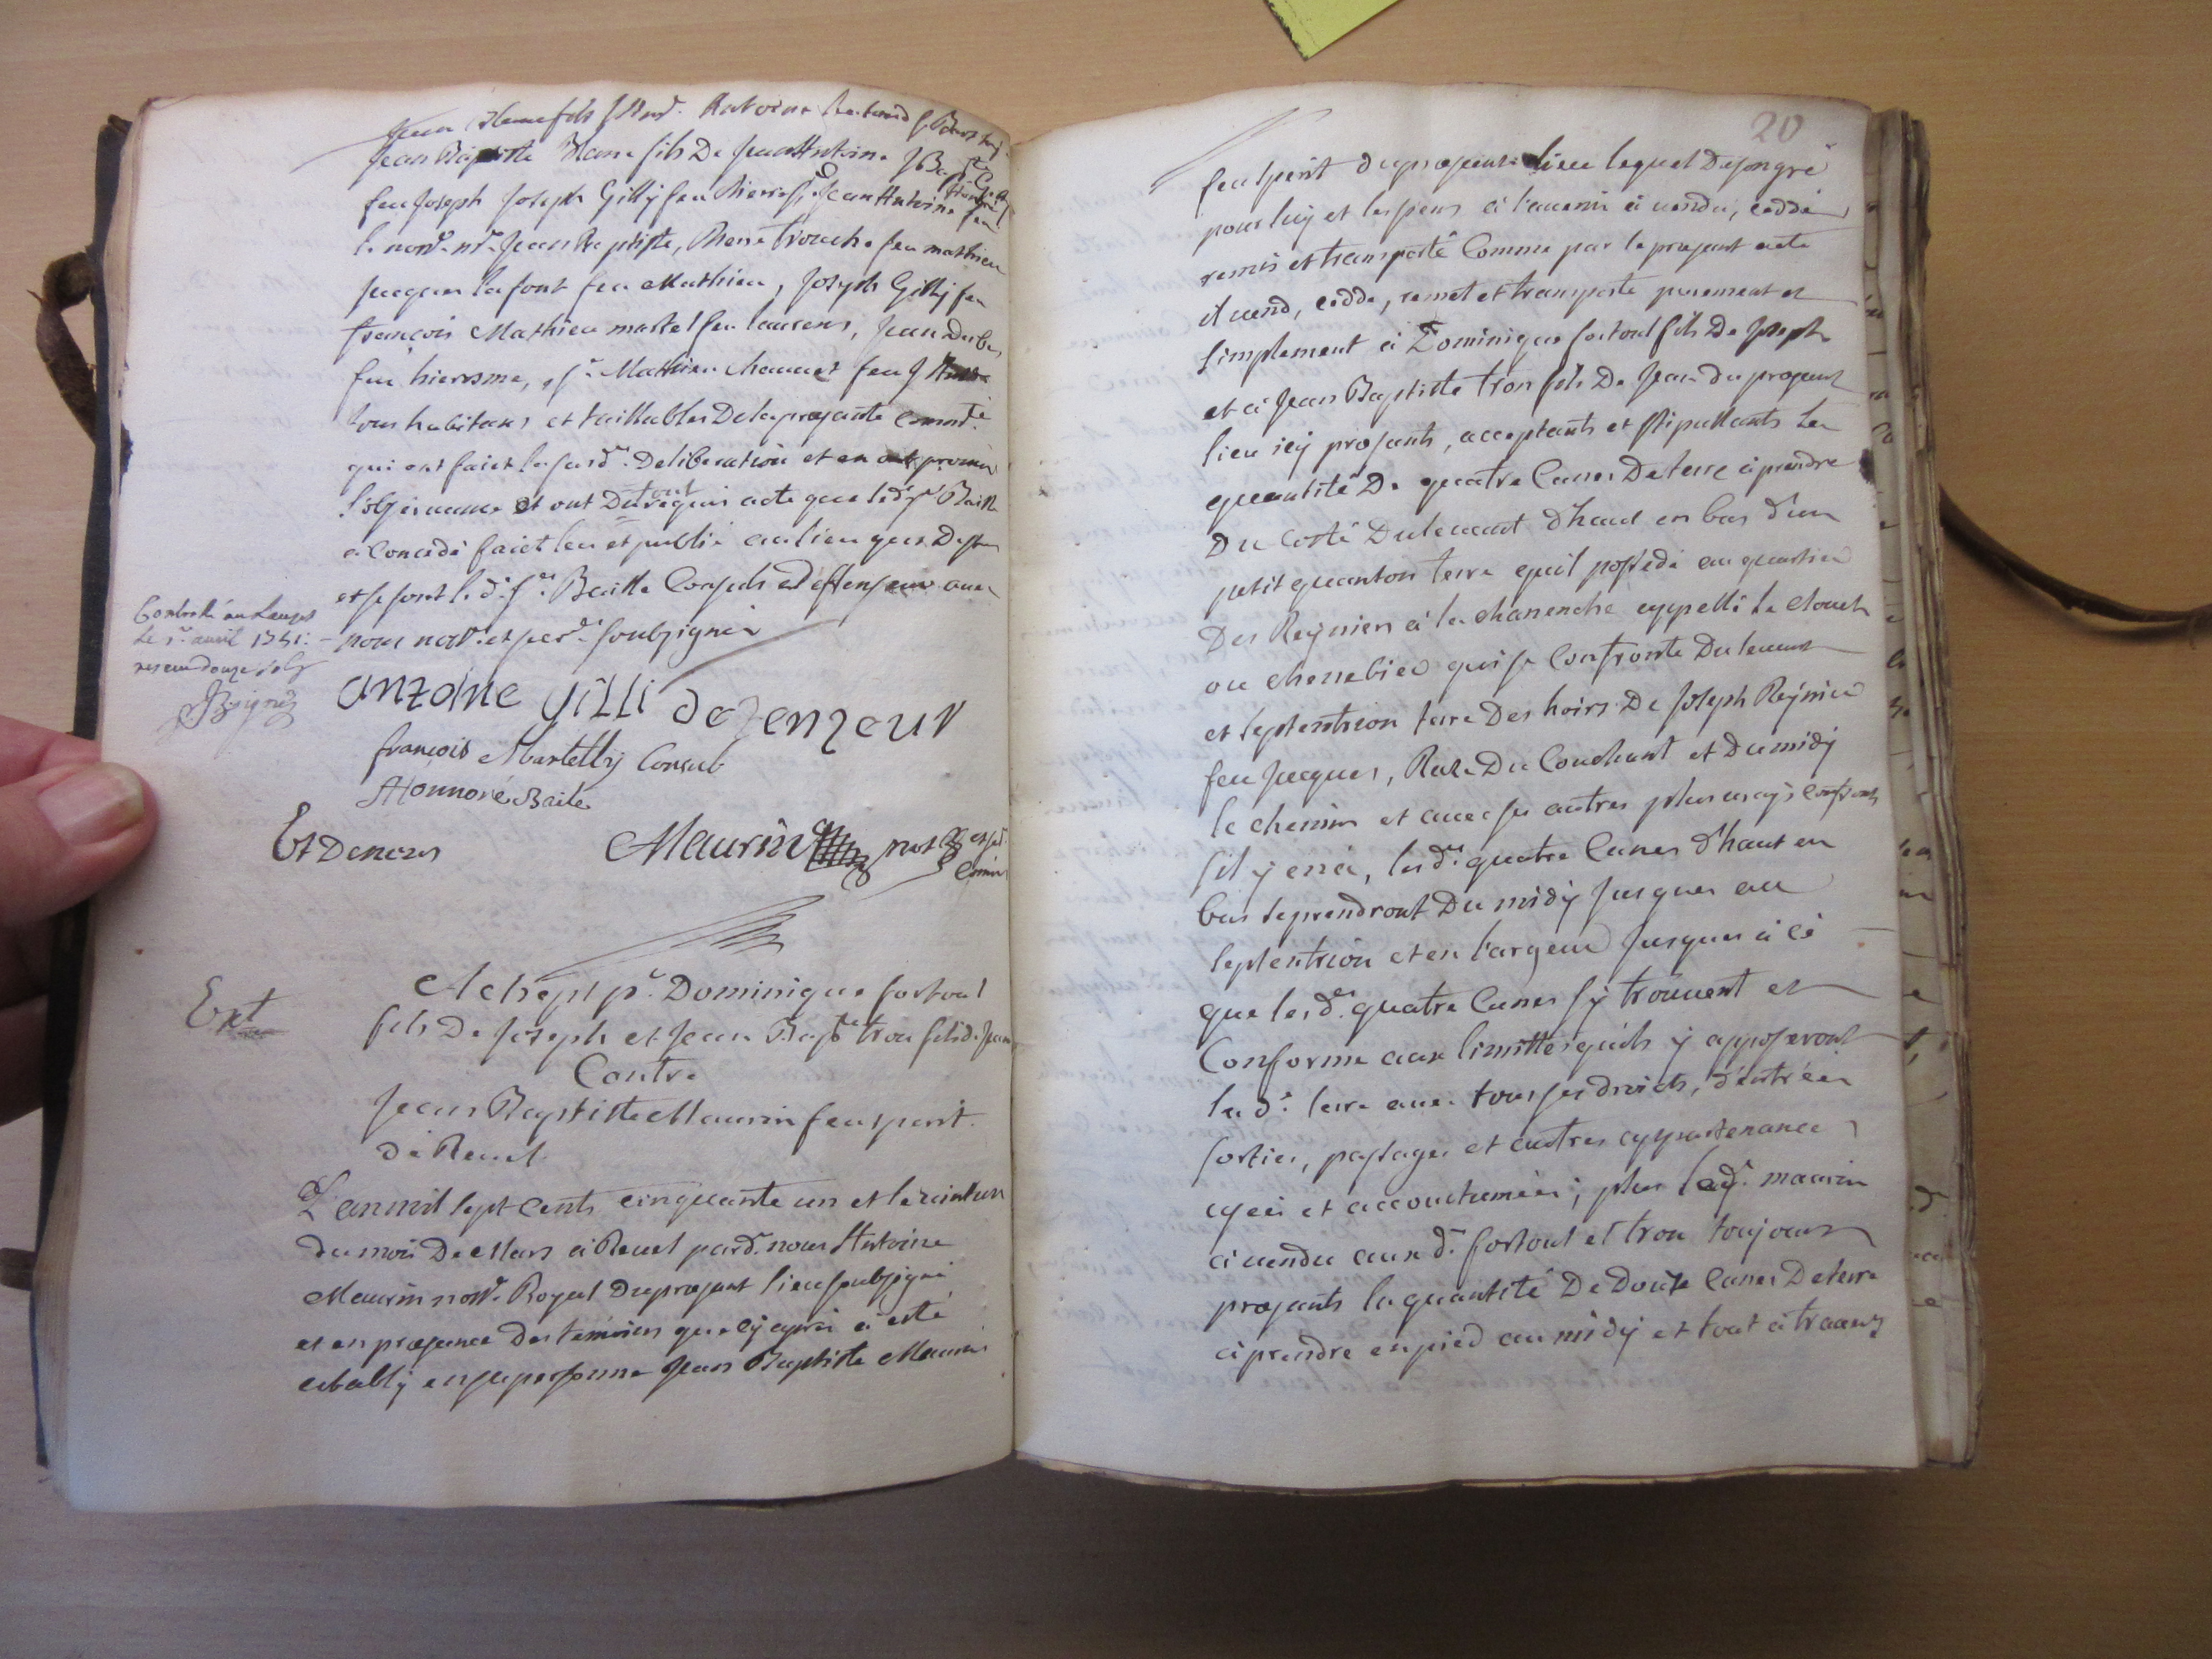 Jean Blanc fils Antoine
Jean Baptiste Blanc fils De Jean Antoine J Bap.te
feu Joseph Joseph Gilly feu Pierre Jean Antoine feu
Jean Baptiste, Pierre trouche feu mathieu
Jacques lafont feu Mathieu, Joseph Gilly feu
françois Mathieu martel feu laurens, Jean
feu hierosme, s.r Mathieu chauvet feu J
tous habitans et taillables De la presante comm.té
qui ont faict la susd. Deliberation et en ont promis
l'observance et ont Du tout requis acte que led. s.r Baille
a concedé faict leu et publié au lieu que Dessus
et se sont led. s.r Baille Consuls et deffenseur avec
nous not.e et gref. soubsignés
Controllé au Lauzet
le 1.r avril 1751:
receu douze sols
antoine gilli defenseur
françois Martelly Consul
Honnoré Baile
Et De nous Maurin not.e
Ext
Achept p.r Dominique fortoul
fils De Joseph et Jean Bap.te tron fils d. Jean
Contre
Jean Baptiste Maurin feu sperit
de Revel
L'an mil sept cents cinquante un et le vint un
du mois De Mars à Revel pard. nous Antoine
Maurin not.e Royal Du presant lieu soubsigné
et en presence des temoins que cy apres a esté
estably en sa personne Jean Baptiste Maurin
20
feu sperit du presant lieu lequel De son gré
pour luy et les siens à l'avenir à vendu, ceddé
remis et transporté Comme par le presant acte
il vend, cedde, remet et transporte purement et
simplement à Dominique fortoul fils De Joseph
et à Jean Baptiste tron fils De Jean du presant
lieu icy presants, acceptants et stipullants La
quantité De quatre Canes De terre à prendre
Du Costé Du levant d'haut en bas d'un
petit quanton terre quil possede au quartier
Des Reynier à la chanenche appellé le clouet
ou chenebier qui se Confronte Du levant
et septentrion terre Des hoirs De Joseph Reynier
feu Jacques, Du Couchant et Du midy
le chemin et avec ses autres plus vrays confronts
s'il y en a, lesd. quatre Canes d'haut en
bas se prendront Du midy Jusques au
septentrion et en l'argeur Jusques à cé
que lesd. quatre Canes s'y trouvent et
Conforme aux limittes qu'ils y apposeront
lad. terre avec tous ses droicts, d'entrées
sorties, passages et autres appartenances
et accoutumées; plus led. maurin
à vendu auxd. fortoul et tron toujours
presants la quantité De Douze Canes De terre
à prendre en pied au midy et tout à travers